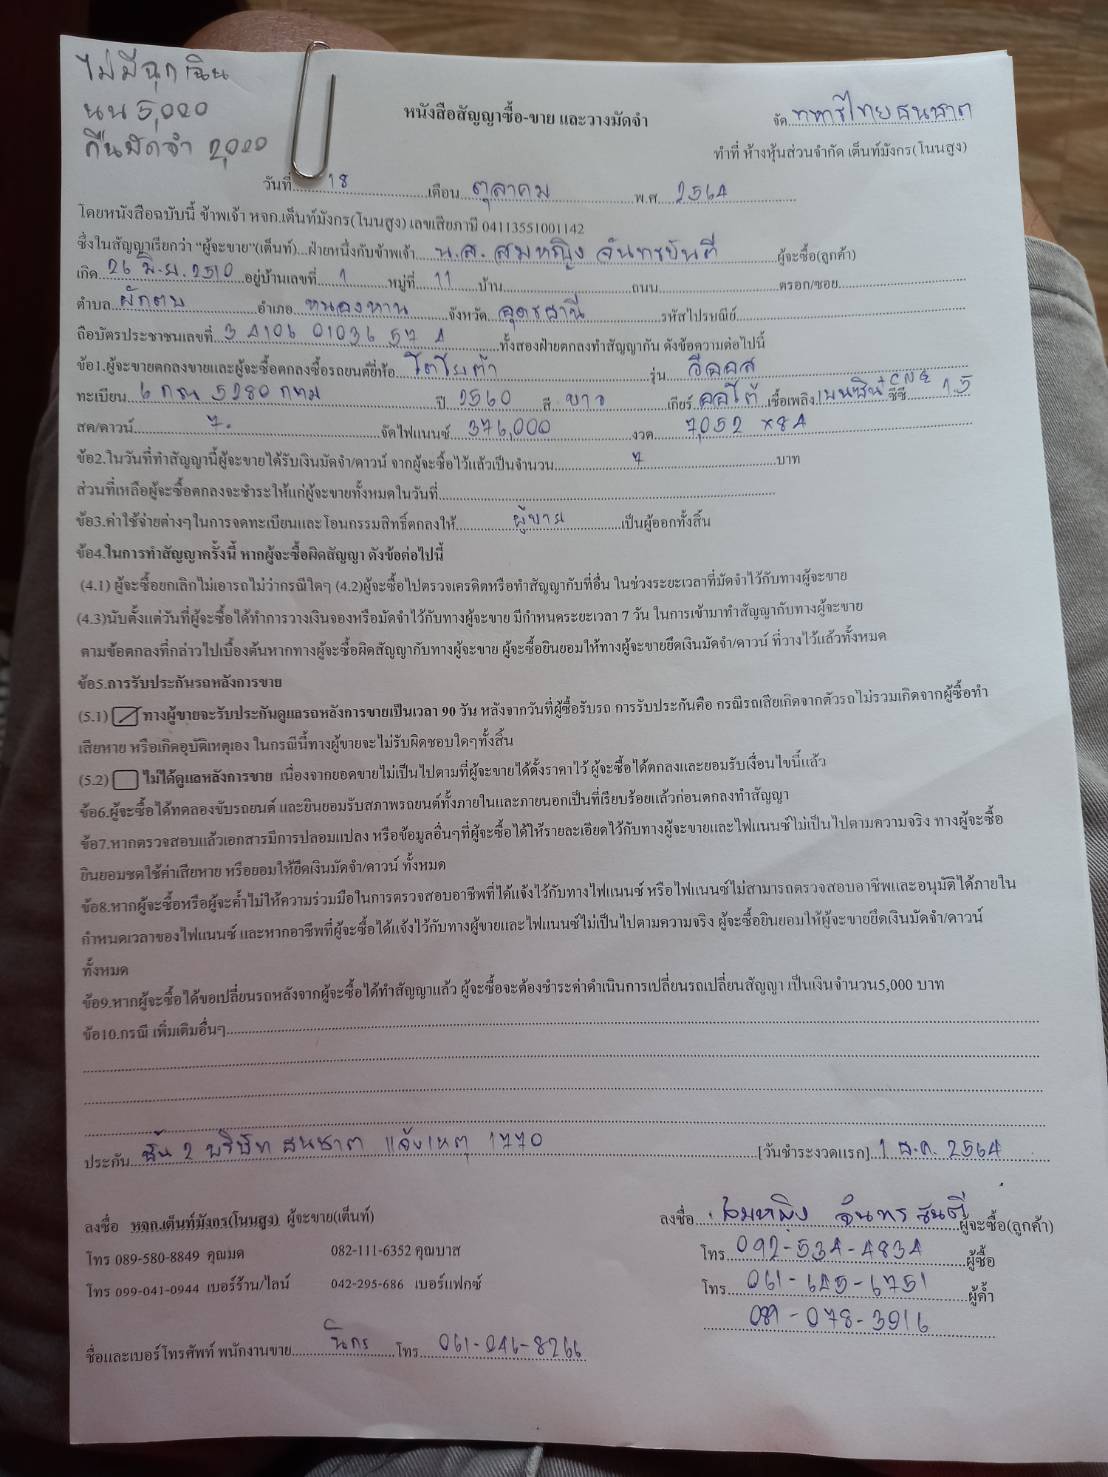 ไม่มีฉุกเฉิน
นน 5,000
คืนมัดจำ 2,000
หนังสือสัญญาซื้อ-ขาย และวางมัดจำ
จัด ทหารไทยธนชาต
ทำที่ ห้างหุ้นส่วนจำกัด เต็นท์มังกร(โนนสูง)
วันที่ 18 เดือน ตุลาคม พ.ศ. 2564
โดยหนังสือฉบับนี้ ข้าพเจ้า หจก.เต็นท์มังกร(โนนสูง) เลขเสียภาษี 04113551001142
ซึ่งในสัญญาเรียกว่า "ผู้จะขาย"(เต็นท์)...ฝ่ายหนึ่งกับข้าพเจ้า น.ส. สมหญิง จันทรขันตี ผู้จะซื้อ(ลูกค้า)
เกิด 26 มิ.ย. 2510 อยู่บ้านเลขที่ 1 หมู่ที่ 11 บ้าน ถนน ตรอก/ซอย
ตำบล ผักตบ อำเภอ หนองหาน จังหวัด อุดรธานี รหัสไปรษณีย์
ถือบัตรประชาชนเลขที่ 3 4106 01036 57 4 ทั้งสองฝ่ายตกลงทำสัญญากัน ดังข้อความต่อไปนี้
ข้อ1.ผู้จะขายตกลงขายและผู้จะซื้อตกลงซื้อรถยนต์ยี่ห้อ โตโยต้า รุ่น วีออส
ทะเบียน 6 กณ 5280 กทม ปี 2560 สี ขาว เกียร์ ออโต้ เชื้อเพลิง เบนซิน+CNG ซีซี 1.5
สด/ดาวน์ จัดไฟแนนซ์ 376,000 งวด 7,052 x84
ข้อ2.ในวันที่ทำสัญญานี้ผู้จะขายได้รับเงินมัดจำ/ดาวน์ จากผู้จะซื้อไว้แล้วเป็นจำนวน บาท
ส่วนที่เหลือผู้จะซื้อตกลงจะชำระให้แก่ผู้จะขายทั้งหมดในวันที่
ข้อ3.ค่าใช้จ่ายต่างๆในการจดทะเบียนและโอนกรรมสิทธิ์ตกลงให้ ผู้ขาย เป็นผู้ออกทั้งสิ้น
ข้อ4.ในการทำสัญญาครั้งนี้ หากผู้จะซื้อผิดสัญญา ดังข้อต่อไปนี้
(4.1) ผู้จะซื้อยกเลิกไม่เอารถไม่ว่ากรณีใดๆ (4.2)ผู้จะซื้อไปตรวจเครดิตหรือทำสัญญากับที่อื่น ในช่วงระยะเวลาที่มัดจำไว้กับทางผู้จะขาย
(4.3)นับตั้งแต่วันที่ผู้จะซื้อได้ทำการวางเงินจองหรือมัดจำไว้กับทางผู้จะขาย มีกำหนดระยะเวลา 7 วัน ในการเข้ามาทำสัญญากับทางผู้จะขาย
ตามข้อตกลงที่กล่าวไปเบื้องต้นหากทางผู้จะซื้อผิดสัญญากับทางผู้จะขาย ผู้จะซื้อยินยอมให้ทางผู้จะขายยึดเงินมัดจำ/ดาวน์ ที่วางไว้แล้วทั้งหมด
ข้อ5.การรับประกันรถหลังการขาย
(5.1) ทางผู้ขายจะรับประกันดูแลรถหลังการขายเป็นเวลา 90 วัน หลังจากวันที่ผู้ซื้อรับรถ การรับประกันคือ กรณีรถเสียเกิดจากตัวรถไม่รวมเกิดจากผู้ซื้อทำ
เสียหาย หรือเกิดอุบัติเหตุเอง ในกรณีนี้ทางผู้ขายจะไม่รับผิดชอบใดๆทั้งสิ้น
(5.2) ไม่ได้ดูแลหลังการขาย เนื่องจากยอดขายไม่เป็นไปตามที่ผู้จะขายได้ตั้งราคาไว้ ผู้จะซื้อได้ตกลงและยอมรับเงื่อนไขนี้แล้ว
ข้อ6.ผู้จะซื้อได้ทดลองขับรถยนต์ และยินยอมรับสภาพรถยนต์ทั้งภายในและภายนอกเป็นที่เรียบร้อยแล้วก่อนตกลงทำสัญญา
ข้อ7.หากตรวจสอบแล้วเอกสารมีการปลอมแปลง หรือข้อมูลอื่นๆที่ผู้จะซื้อได้ให้รายละเอียดไว้กับทางผู้จะขายและไฟแนนซ์ไม่เป็นไปตามความจริง ทางผู้จะซื้อ
ยินยอมชดใช้ค่าเสียหาย หรือยอมให้ยึดเงินมัดจำ/ดาวน์ ทั้งหมด
ข้อ8.หากผู้จะซื้อหรือผู้จะค้ำไม่ให้ความร่วมมือในการตรวจสอบอาชีพที่ได้แจ้งไว้กับทางไฟแนนซ์ หรือไฟแนนซ์ไม่สามารถตรวจสอบอาชีพและอนุมัติได้ภายใน
กำหนดเวลาของไฟแนนซ์ และหากอาชีพที่ผู้จะซื้อได้แจ้งไว้กับทางผู้ขายและไฟแนนซ์ไม่เป็นไปตามความจริง ผู้จะซื้อยินยอมให้ผู้จะขายยึดเงินมัดจำ/ดาวน์
ทั้งหมด
ข้อ9.หากผู้จะซื้อได้ขอเปลี่ยนรถหลังจากผู้จะซื้อได้ทำสัญญาแล้ว ผู้จะซื้อจะต้องชำระค่าดำเนินการเปลี่ยนรถเปลี่ยนสัญญา เป็นเงินจำนวน5,000 บาท
ข้อ10.กรณี เพิ่มเติมอื่นๆ
ประกัน ชั้น 2 บริษัท ธนชาต แจ้งเหตุ 1770 [วันชำระงวดแรก] 1 ธ.ค. 2564
ลงชื่อ หจก.เต็นท์มังกร(โนนสูง) ผู้จะขาย(เต็นท์)
ลงชื่อ สมหญิง จันทรขันตี ผู้จะซื้อ(ลูกค้า)
โทร 089-580-8849 คุณมด 082-111-6352 คุณบาส
โทร 092-534-4834 ผู้ซื้อ
โทร 099-041-0944 เบอร์ร้าน/ไลน์ 042-295-686 เบอร์แฟกซ์
โทร 061-645-6751 ผู้ค้ำ
089-078-3916
ชื่อและเบอร์โทรศัพท์ พนักงานขาย นิกร โทร 061-046-8266